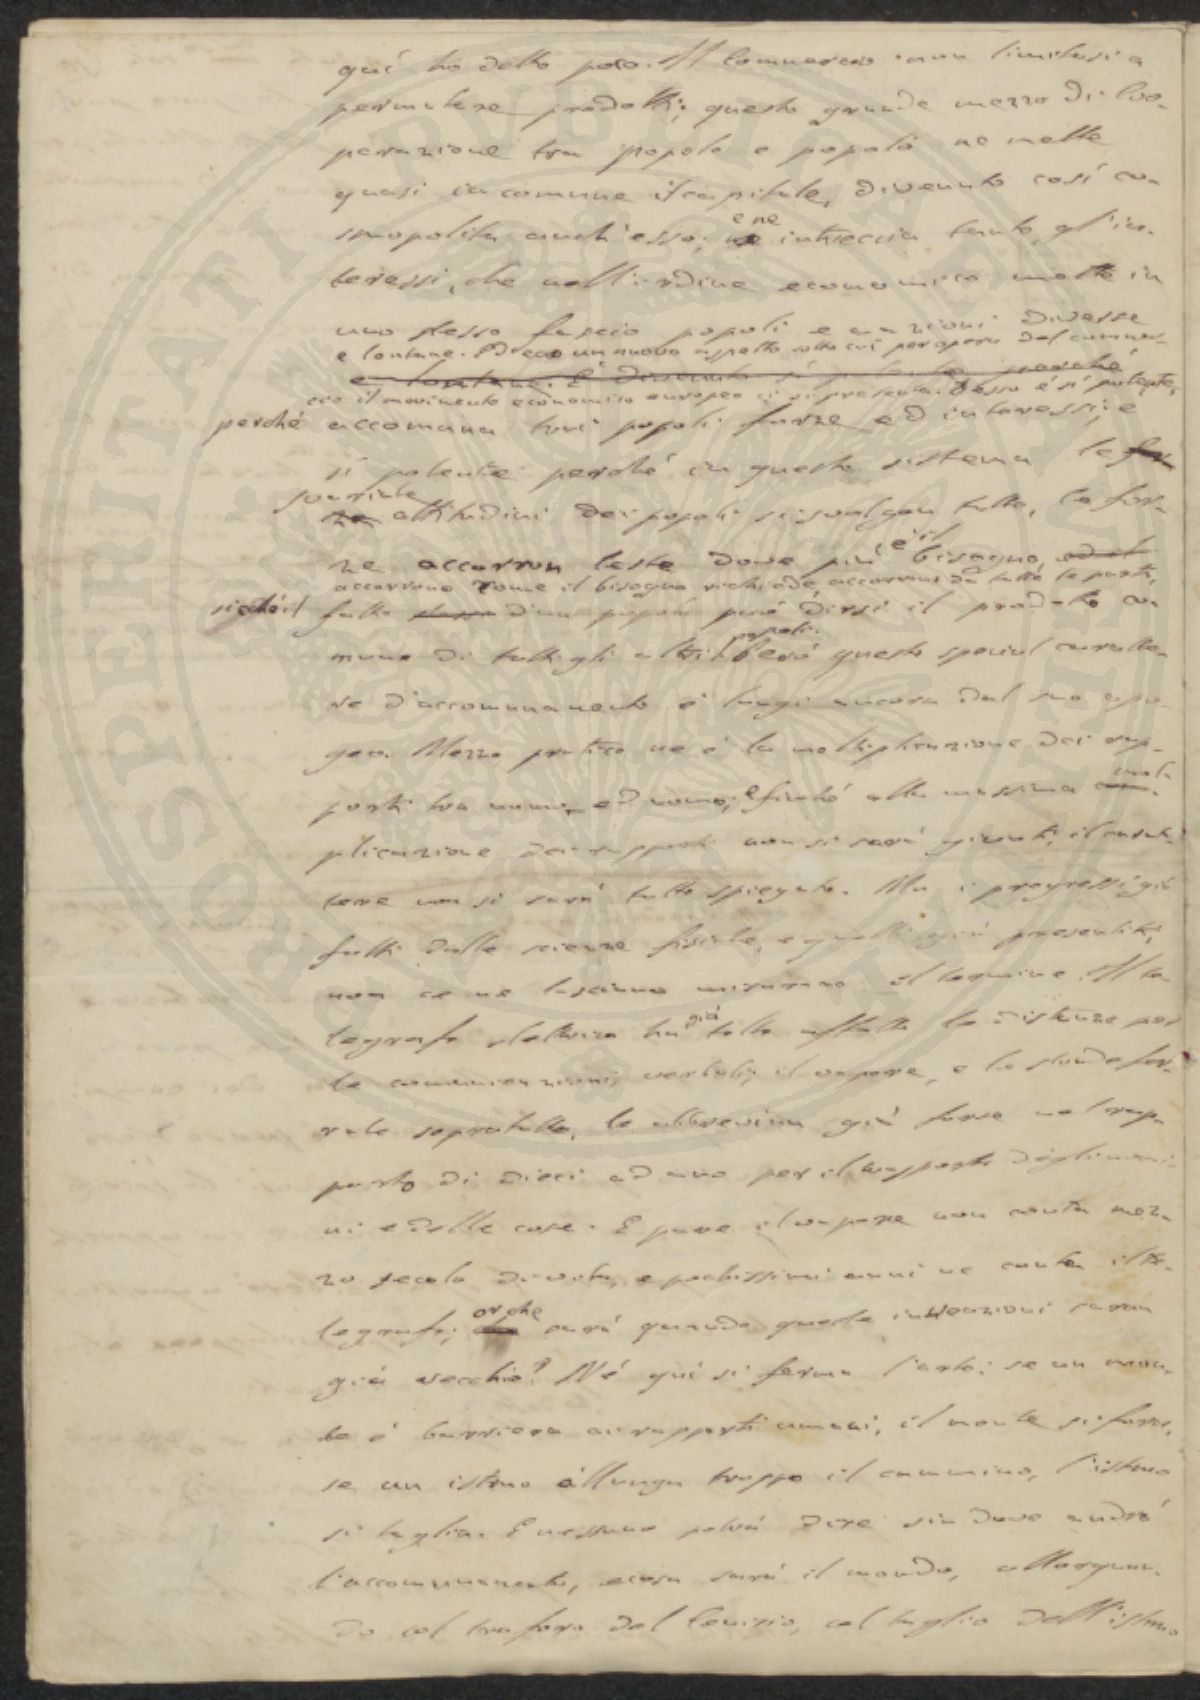 quí ho detto poco. Il commercio non limitasi a
permutare prodotti; questo grande mezzo di coo-
perazione tra popolo e popolo ne mette
quasi in comune il capitale, divenuto cosí co-
smopolita anch'esso; e ne intreccia tanto gl'in-
teressi, che nell'ordine economico mette in
uno stesso fascio popoli e nazioni diverse
e lontane. Ed ecco un nuovo aspetto sotto cui per opera del commer-
e lontane. È divenuto sí potente perché
cio il movimento economico europeo ci si presenta. Desso è sí potente,
perché accomuna tra i popoli forze ed interessi; e
sí potente perché in questo sistema le for
svariate
ze attitudini dei popoli si svolgon tutte, le for-
ze accorron leste dove piú c'è il bisogno,
accorrono come il bisogno richiede, accorrono da tutte le parti,
sicché il fatto d'un popolo puó dirsi il prodotto co-
mune di tutti gli altri popoli. Peró questo special caratte-
re d'accomunamento è lungi ancora dal suo apo-
geo. Mezzo pratico ne è la moltiplicazione dei rap-
porti tra uomo ed uomo; e finché alla massima molti-
plicazione dei rapporti non si sará giunti, il carat-
tere non si sará tutto spiegato. Ma i progressi giá
fatti dalle scienze fisiche, e quelli giá presentiti,
non ce ne lasciano misurare il termine. Il te-
legrafo elettrico ha giá tolto affatto le distanze per
le comunicazioni verbali; il vapore, e le strade fer-
rate sopratutto, le abbrevian giá forse nel rap-
porto di dieci ad uno per il trasporto degli uomi-
ni e delle cose. E pure il vapore non conta mez-
zo secolo di vita, e pochissimi anni ne conta il te-
legrafo; or che sará quando queste invenzioni saran
giá vecchie? Né quí si ferma l'arte; se un mon-
te è barriera ai rapporti umani, il monte si fora,
se un istmo allunga troppo il cammino, l'istmo
si taglia. E nessuno potrá dire sin dove andrá
l'accomunamento, e cosa sará il mondo, allorquan-
do col traforo del Cenisio, col taglio dell'istmo